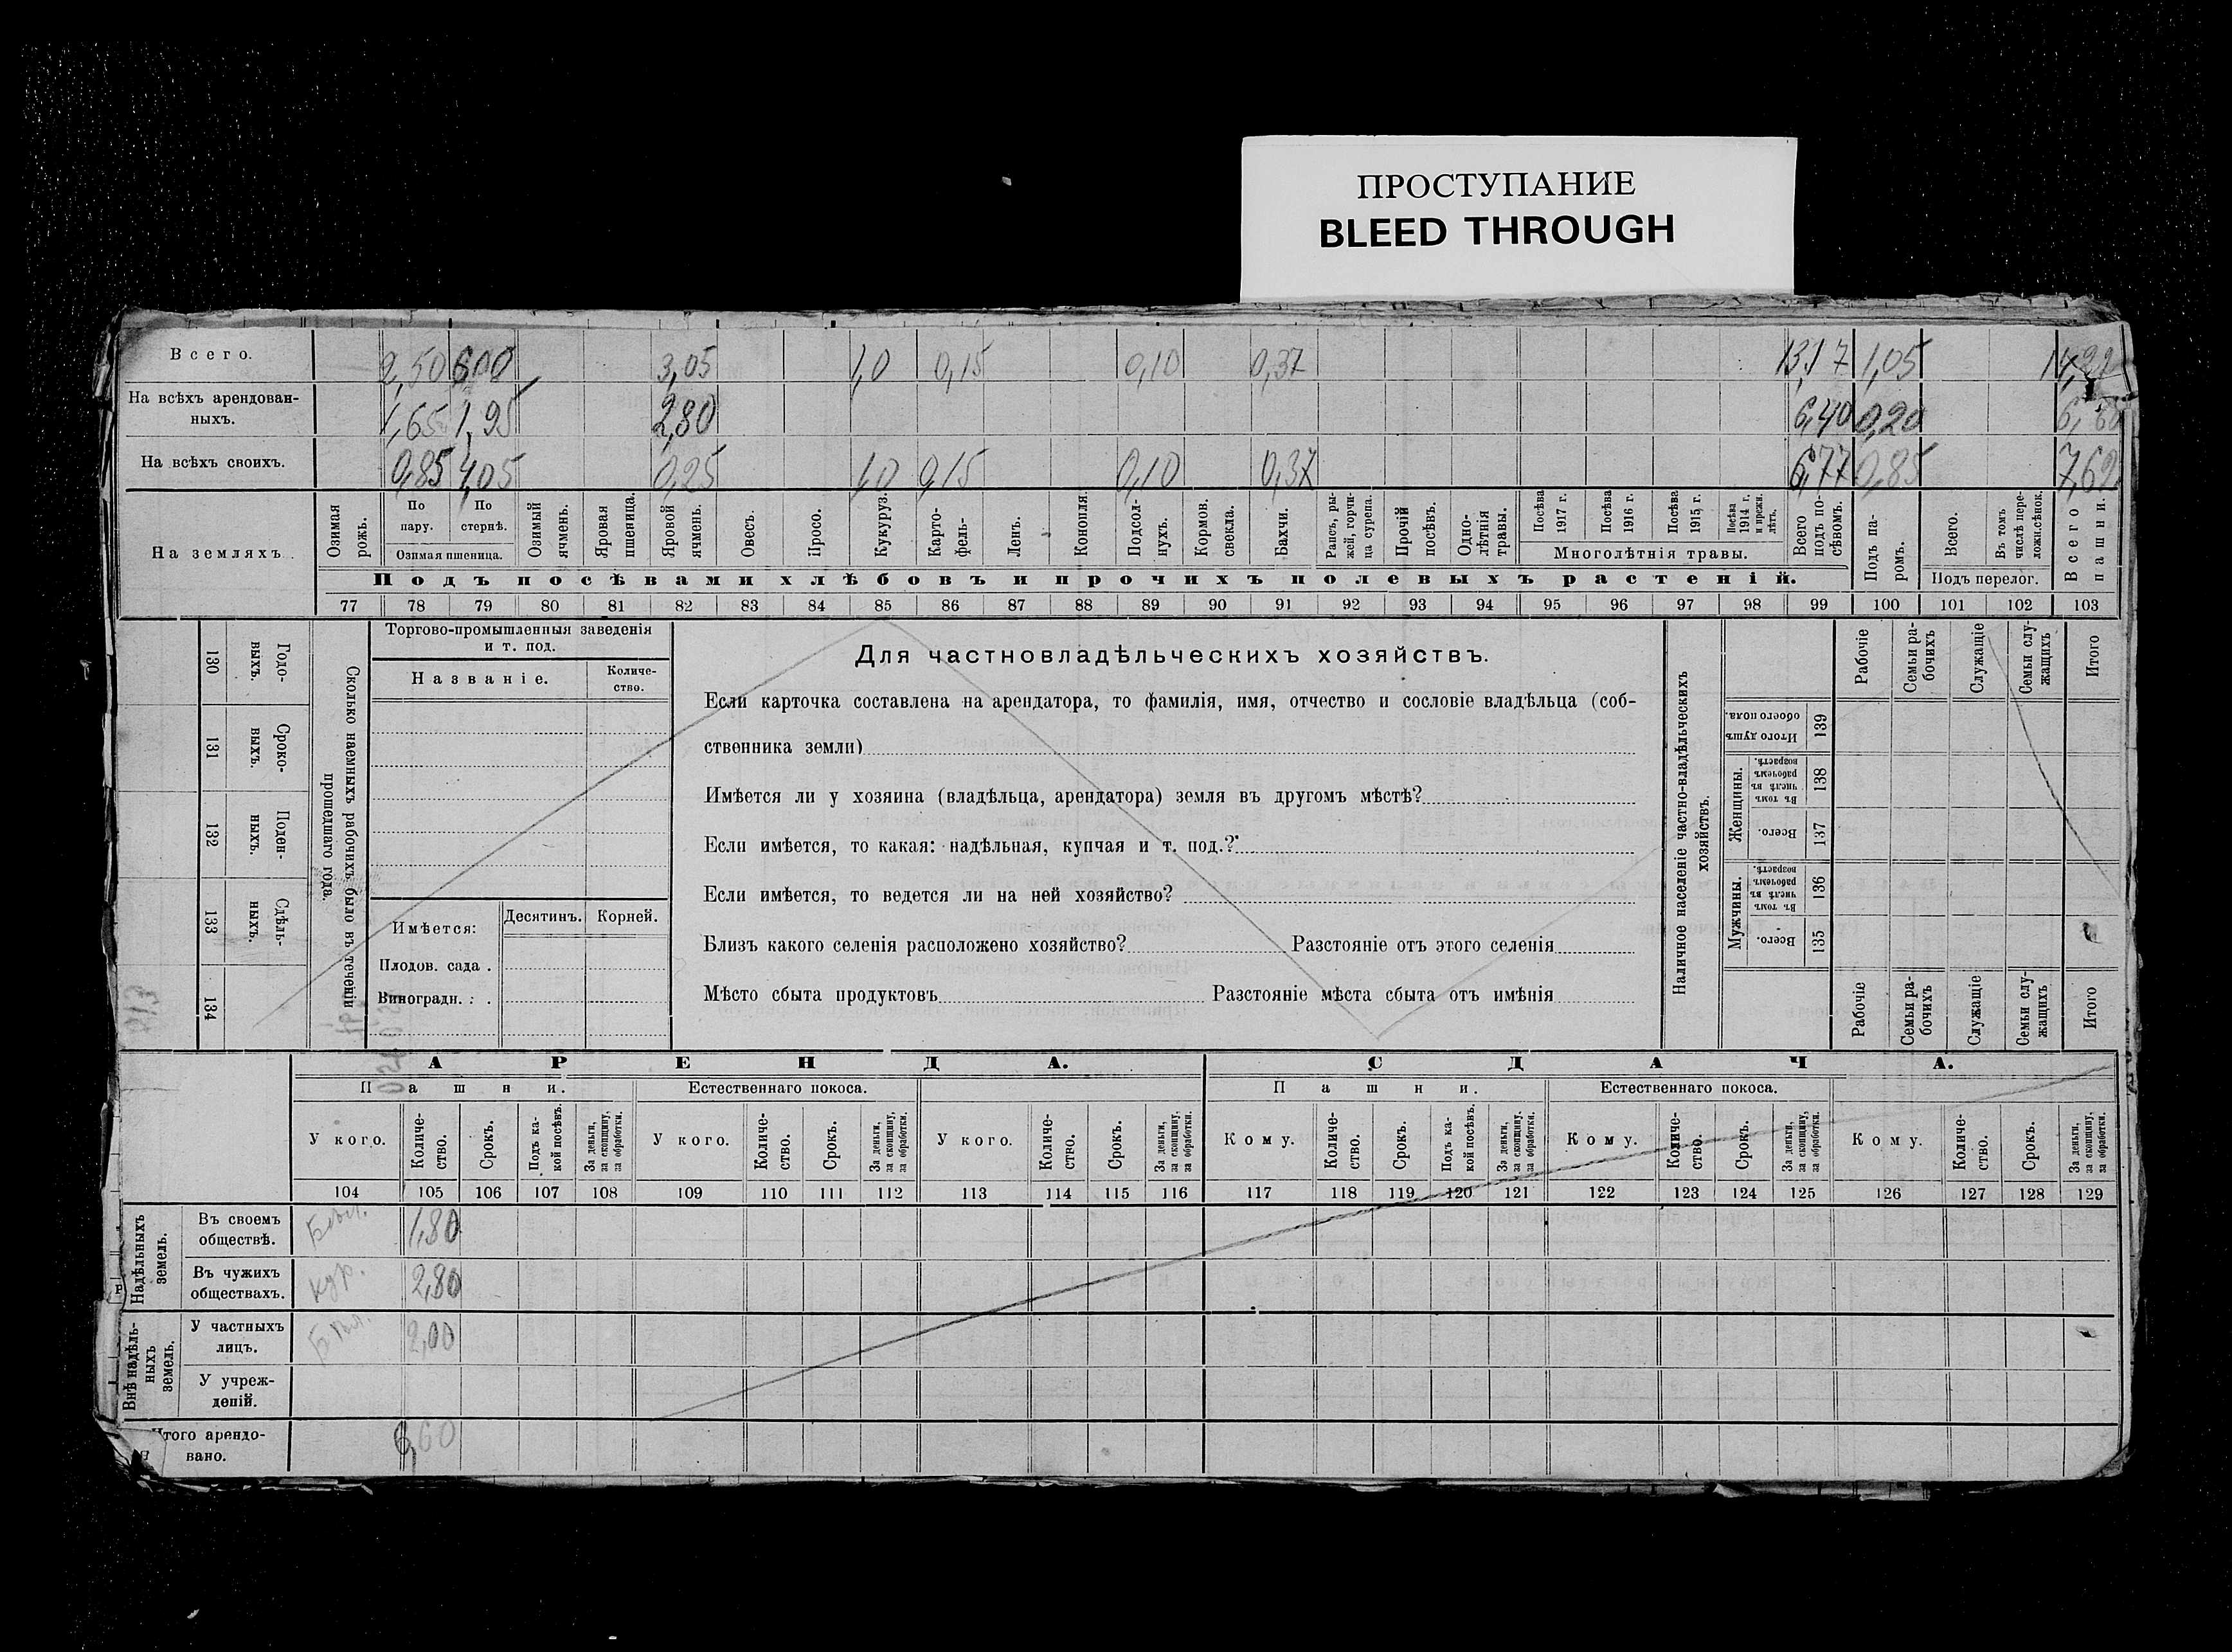 ПРОСТУПАНИЕ
BLEED THROUGH
Всего. 2,50 6,00 3,05 1,0 0,15 0,10 0,37 13,17 1,05
На всѣхъ арендован-
ныхъ. 1,65 1,95 2,80 6,40 0,20 6,60
На всѣхъ своихъ. 0,85 4,05 0,25 1,0 0,15 0,10 0,37 6,77 0,85 7,62
На земляхъ
Озимая рожь.
По пару.
По стернѣ.
Озимая пшеница.
Озимый ячмень.
Яровая пшеница.
Яровой ячмень.
Овесъ.
Просо.
Кукуруз.
Карто-
фель-
Ленъ.
Конопля.
Подсол-
нухъ.
Кормов. свекла.
Бахчи.
Рапсъ, ры-
жей, горчи-
ца сурепа.
Прочій посѣвъ.
Одно-
лѣтнія
травы.
Посѣва 1917 г.
Посѣва 1916 г.
Посѣва 1915 г.
Посѣва 1914 г. и прежн. лѣтъ.
Многолѣтнія травы.
Всего подъ по-
сѣвомъ.
Подъ посѣвами хлѣбовъ и прочихъ полевыхъ растеній.
Подъ па-
ромъ.
Всего.
Въ томъ числѣ пере-
ложн.сѣнок.
Подъ перелог.
Всего пашни.
77 78 79 80 81 82 83 84 85 86 87 88 89 90 91 92 93 94 95 96 97 98 99 100 101 102 103
Годо-
выхъ.
130
Сроко-
выхъ.
131
Поден-
ныхъ.
132
Сдѣль-
ныхъ.
133
134
Сколько наемныхъ рабочихъ было въ теченіи
прошедшаго года.
Торгово-промышленныя заведенія
и т. под.
Названіе.
Количе-
ство.
Имѣется:
Десятинъ.
Корней.
Плодов. сада .
Виноградн. . .
Для частновладѣльческихъ хозяйствъ.
Если карточка составлена на арендатора, то фамилія, имя, отчество и сословіе владѣльца (соб-
ственника земли)
Имѣется ли у хозяина (владѣльца, арендатора) земля въ другомъ мѣстѣ?
Если имѣется, то какая: надѣльная, купчая и т. под.?
Если имѣется, то ведется ли на ней хозяйство?
Близъ какого селенія расположено хозяйство? Разстояніе отъ этого селенія
Мѣсто сбыта продуктовъ Разстояніе мѣста сбыта отъ имѣнія
Наличное населеніе частно-владѣльческихъ
хозяйствъ.
Рабочіе
Семьи ра-
бочихъ
Служащіе
Семьи слу-
жащихъ
Итого
Итого душъ обоего пола.
139
Женщины.
Въ томъ числѣ въ рабочемъ возрастѣ.
138
Всего.
137
Мужчины.
Въ томъ числѣ въ рабочемъ возрастѣ.
136
Всего.
135
Рабочіе
Семьи ра-
бочихъ
Служащіе
Семьи слу-
жащихъ
Итого
АРЕНДА.
СДАЧА.
Пашни.
Естественнаго покоса.
Пашни.
Естественнаго покоса.
У кого.
Количе-
ство.
Срокъ.
Подъ ка-
кой посѣвъ.
За деньги,
за скопщину,
за обработки.
У кого.
Количе-
ство.
Срокъ.
За деньги,
за скопщину,
за обработки.
У кого.
Количе-
ство.
Срокъ.
За деньги,
за скопщину,
за обработки.
Кому.
Количе-
ство.
Срокъ.
Подъ ка-
кой посѣвъ.
За деньги,
за скопщину,
за обработки.
Кому.
Количе-
ство.
Срокъ.
За деньги,
за скопщину,
за обработки.
Кому.
Количе-
ство.
Срокъ.
За деньги,
за скопщину,
за обработки.
104 105 106 107 108 109 110 111 112 113 114 115 116 117 118 119 120 121 122 123 124 125 126 127 128 129
Надѣльныхъ
земель.
Въ своемъ
обществѣ. 1,80
Въ чужихъ
обществахъ. 2,80
Внѣ надѣль-
ныхъ
земель.
У частныхъ
лицъ. 2,00
У учреж-
деній.
Итого арендо-
вано. 6,60